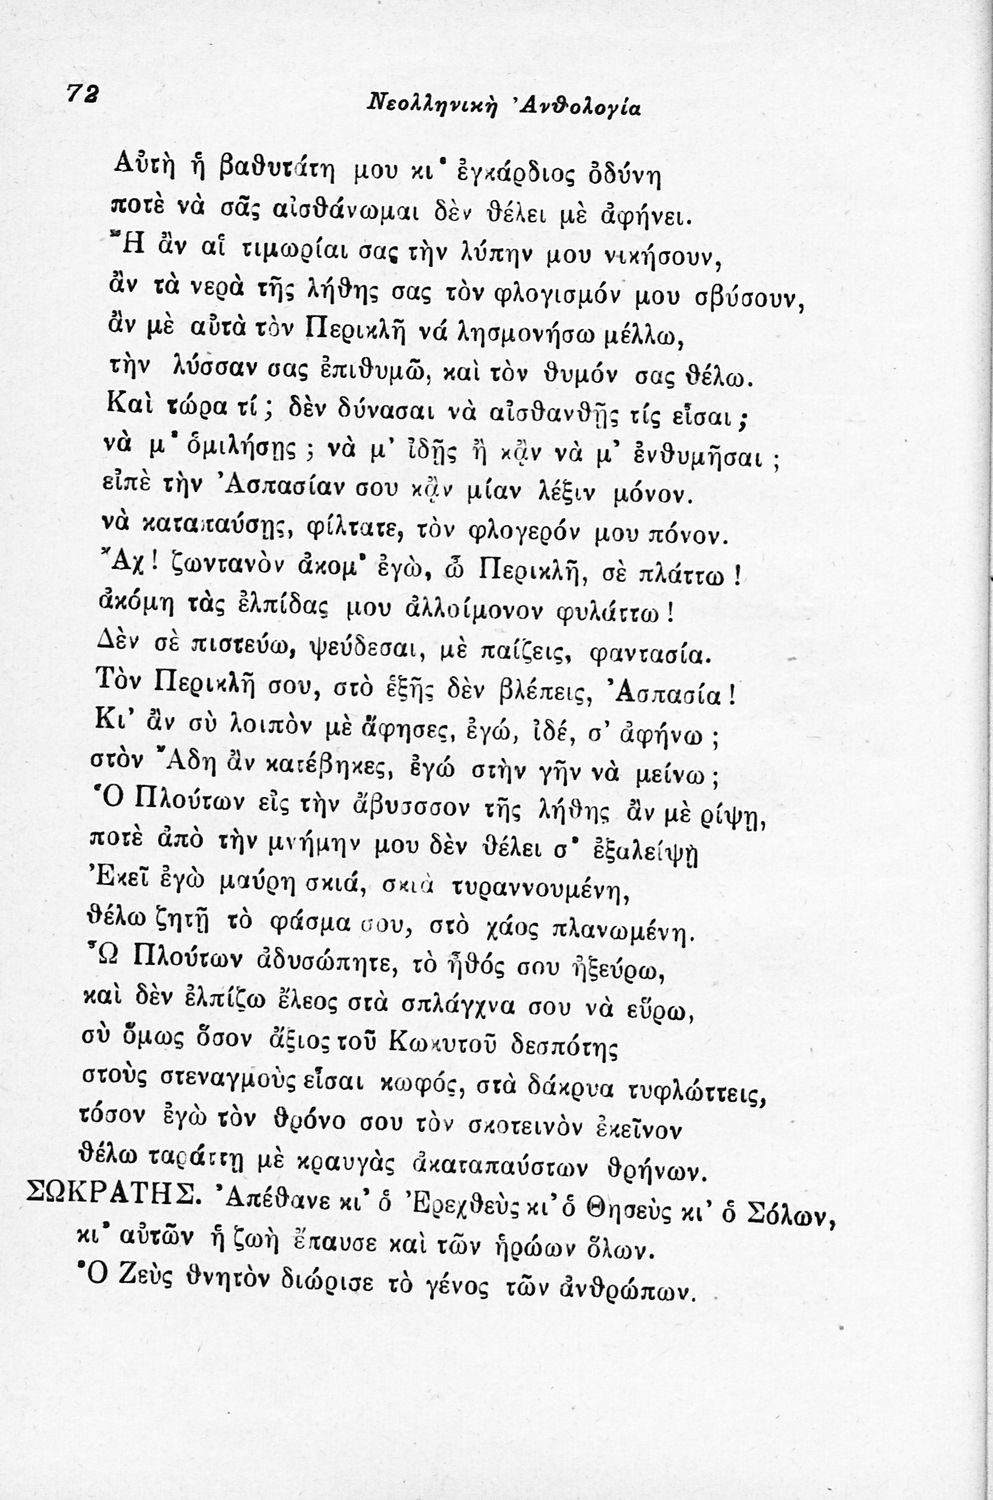 72
Νεολληνικὴ Ἀνθολογία
Αὐτὴ ἡ βαθυτάτη μου κι' ἐγκάρδιος ὀδύνη
ποτὲ νὰ σᾶς αἰσθάνωμαι δὲν θέλει μὲ ἀφήνει.
Ἢ ἂν αἱ τιμωρίαι σας τὴν λύπην μου νικήσουν,
ἂν τὰ νερὰ τῆς λήθης σας τὸν φλογισμόν μου σβύσουν,
ἂν μὲ αὐτὰ τὸν Περικλῆ νά λησμονήσω μέλλω,
τὴν λύσσαν σας ἐπιθυμῶ, καὶ τὸν θυμόν σας θέλω.
Καὶ τώρα τί; δὲν δύνασαι νὰ αἰσθανθῇς τίς εἶσαι;
νὰ μ' ὁμιλήσῃς; νὰ μ' ἰδῇς ἢ κᾂν νὰ μ' ἐνθυμῆσαι;
εἰπὲ τὴν Ἀσπασίαν σου κᾂν μίαν λέξιν μόνον.
νὰ καταπαύσῃς, φίλτατε, τὸν φλογερόν μου πόνον.
Ἂχ! ζωντανὸν ἀκομ' ἐγὼ, ὦ Περικλῆ, σὲ πλάττω!
ἀκόμη τὰς ἐλπίδας μου ἀλλοίμονον φυλάττω!
Δὲν σὲ πιστεύω, ψεύδεσαι, μὲ παίζεις, φαντασία.
Τὸν Περικλῆ σου, στὸ ἑξῆς δὲν βλέπεις, Ἀσπασία!
Κι' ἂν σὺ λοιπὸν μὲ ἄφησες, ἐγώ, ἰδέ, σ' ἀφήνω;
στὸν Ἄδη ἂν κατέβηκες, ἐγώ στὴν γῆν νὰ μείνω;
Ὁ Πλούτων εἰς τὴν ἄβυσσσον τῆς λήθης ἂν μὲ ρίψῃ,
ποτὲ ἀπὸ τὴν μνήμην μου δὲν θέλει σ' ἐξαλείψῃ
Ἐκεῖ ἐγὼ μαύρη σκιά, σκιὰ τυραννουμένη,
θέλω ζητῇ τὸ φάσμα σου, στὸ χάος πλανωμένη.
Ὦ Πλούτων ἀδυσώπητε, τὸ ἦθός σου ἠξεύρω,
καὶ δὲν ἐλπίζω ἔλεος στὰ σπλάγχνα σου νὰ εὕρω,
σὺ ὅμως ὅσον ἄξιος τοῦ Κωκυτοῦ δεσπότης
στοὺς στεναγμοὺς εἶσαι κωφός, στὰ δάκρυα τυφλώττεις,
τόσον ἐγὼ τὸν θρόνο σου τὸν σκοτεινὸν ἐκεῖνον
θέλω ταράττῃ μὲ κραυγὰς ἀκαταπαύστων θρήνων.
ΣΩΚΡΑΤΗΣ. Ἀπέθανε κι' ὁ Ἐρεχθεὺς κι' ὁ Θησεὺς κι' ὁ Σόλων,
κι' αὐτῶν ἡ ζωὴ ἔπαυσε καὶ τῶν ἡρώων ὅλων.
Ὁ Ζεὺς θνητὸν διώρισε τὸ γένος τῶν ἀνθρώπων.